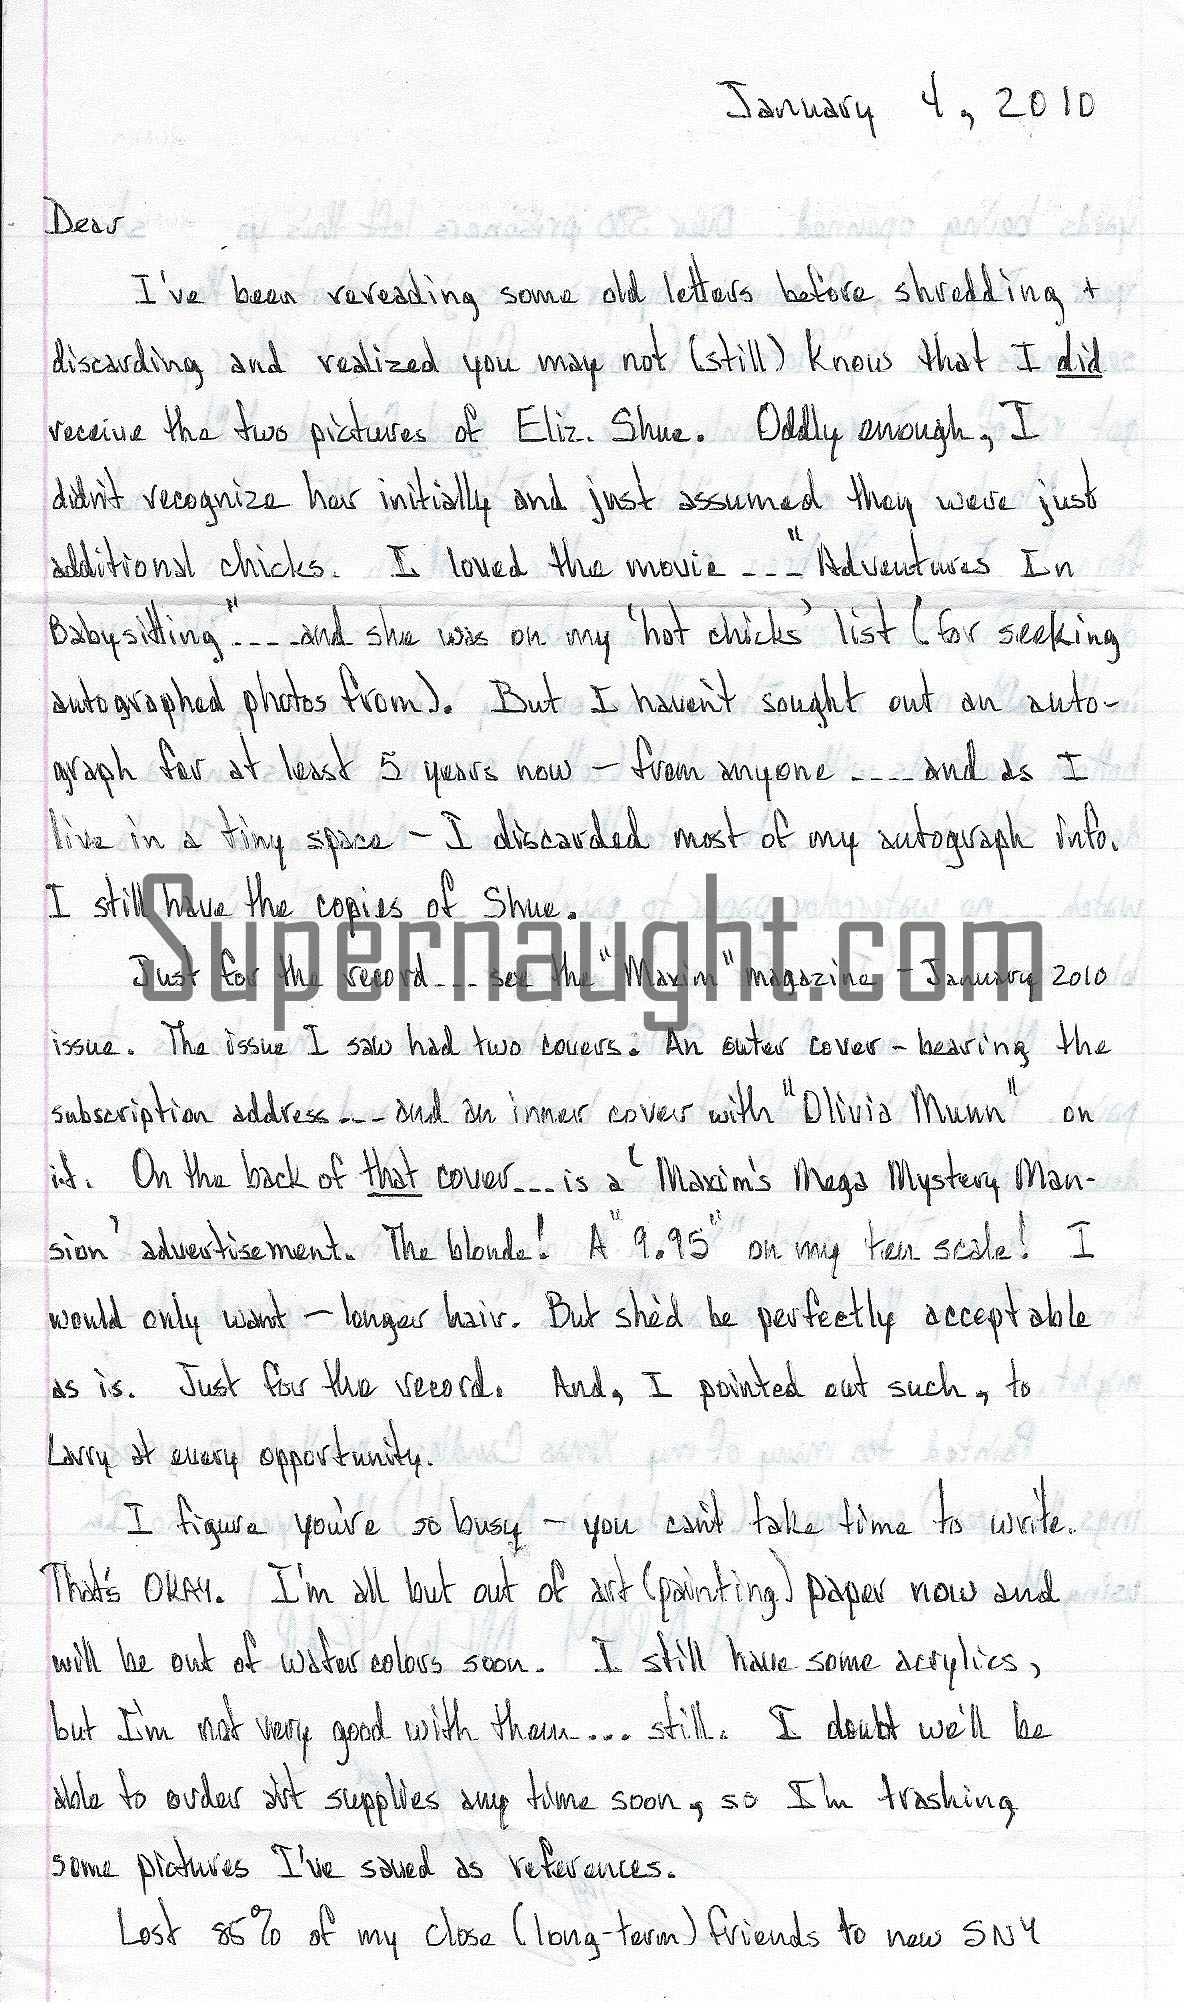 January 4, 2010
Dear
I've been rereading some old letters before shredding +
discarding and realized you may not (still) know that I did
receive the two pictures of Eliz. Shue. Oddly enough, I
didn't recognize her initially and just assumed they were just
additional chicks. I loved the movie ---"Adventures In
Babysitting"----and she was on my 'hot chicks' list (for seeking
autographed photos from). But I haven't sought out an auto-
graph for at least 5 years now - from anyone ----and as I
live in a tiny space - I discarded most of my autograph info.
I still have the copies of Shue.
Supernaught.com
Just for the record---see the "Maxim" magazine - January 2010
issue. The issue I saw had two covers. An outer cover - bearing the
subscription address---and an inner cover with "Olivia Munn" on
it. On the back of that cover---is a 'Maxim's Mega Mystery Man-
sion' advertisement. The blonde! A "9.95" on my ten scale! I
would only want - longer hair. But she'd be perfectly acceptable
as is. Just for the record. And, I pointed out such, to
Larry at every opportunity.
I figure you're so busy - you can't take time to write.
That's OKAY. I'm all but out of art (painting) paper now and
will be out of watercolors soon. I still have some acrylics,
but I'm not very good with them... still. I doubt we'll be
able to order art supplies any time soon, so I'm trashing
some pictures I've saved as references.
Lost 85% of my close (long-term) friends to new SNY